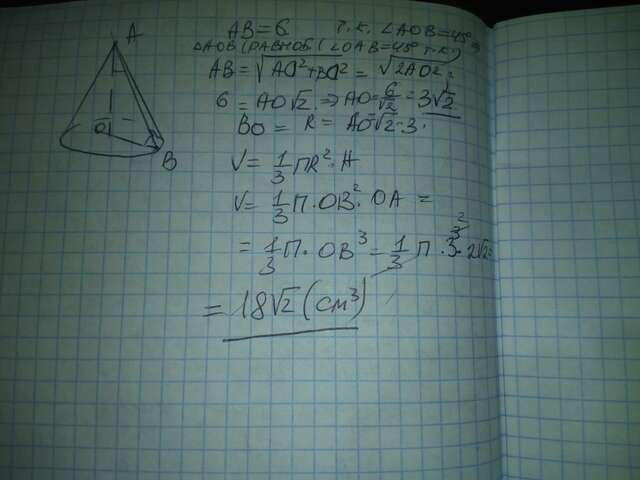 A
O
B
AB = 6 т.к. ∠AOB = 45°
△AOB (РАВНОБ. (∠OAB = 45° т.к.)
AB = √AO² + BO² = √2AO² =
6 = AO√2 ⇒ AO = 6/√2 = 3√2
BO = R = AO = √2 · 3.
V = 1/3 ПR² · H
V = 1/3 П · OB² · OA =
= 1/3 П · OB³ = 1/3 П · 3³ · 2√2 =
= 18√2 (см³)